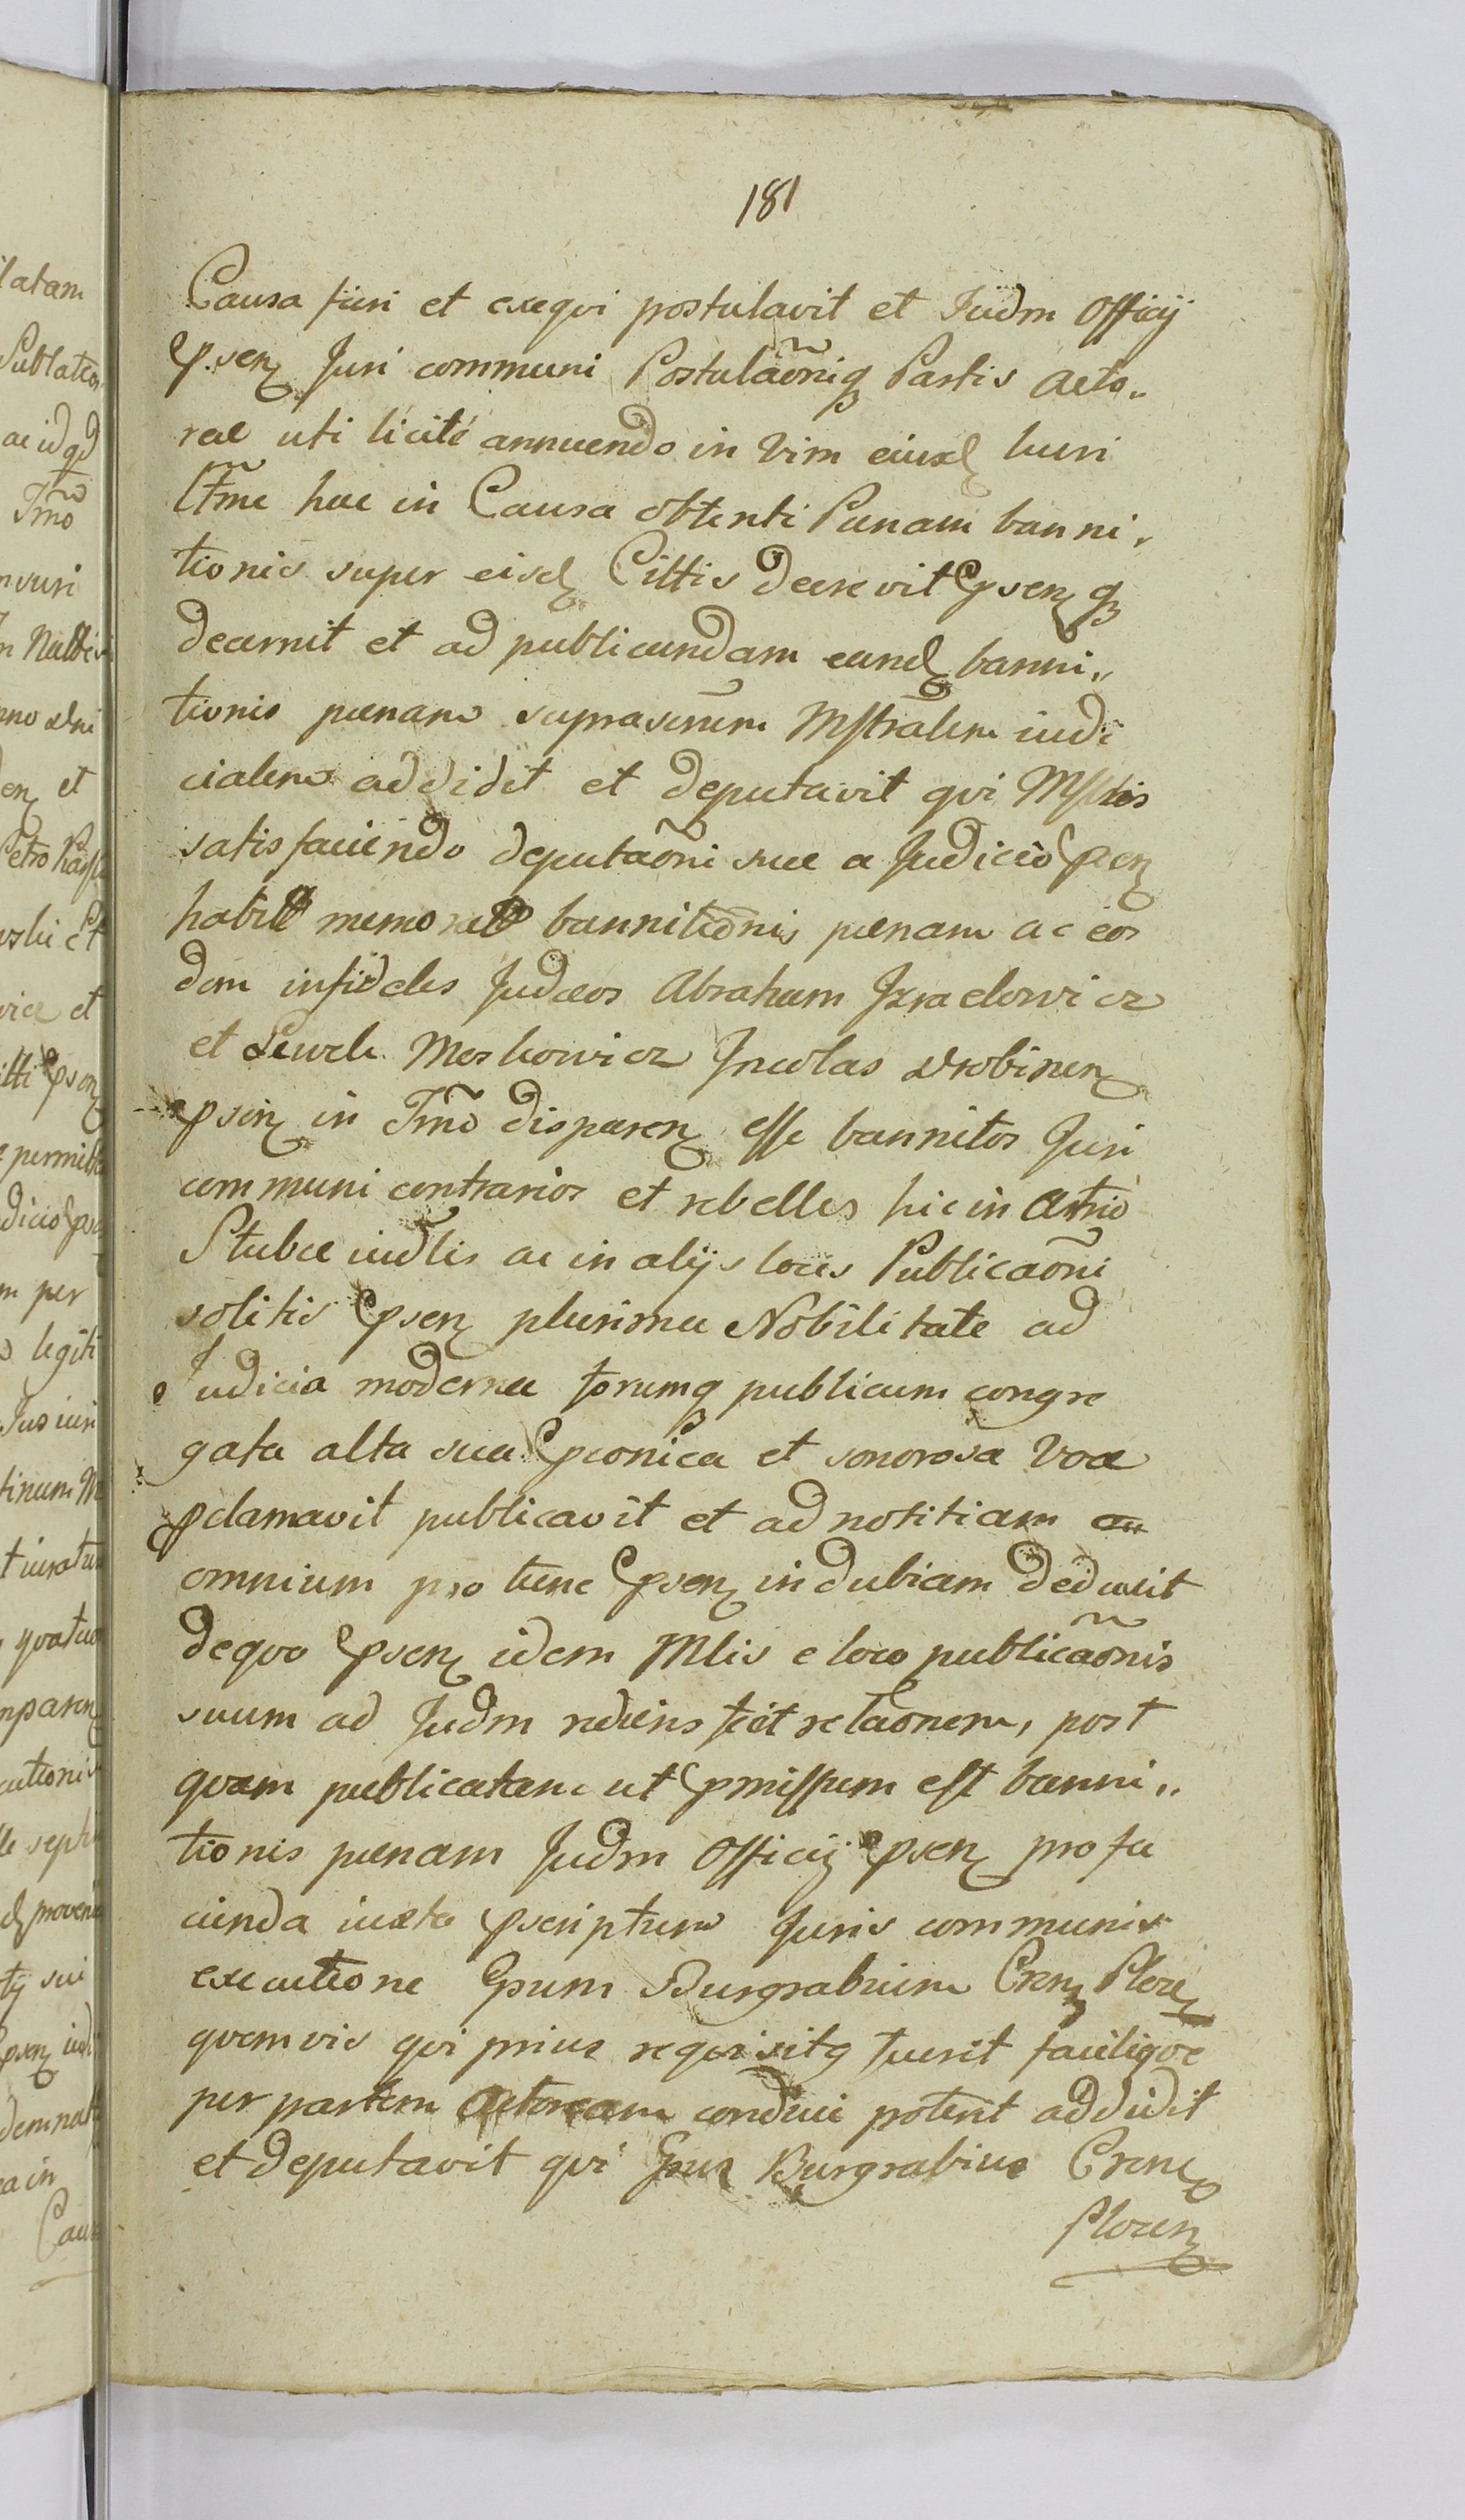 181
Causa fieri et exeqvi postulavit et Iudm Officij
Psen Juri communi Postulaõniq Partis Acto„
reae uti licité annuendo in vim eiusd lucri
Ltm̃e hac in Causa obtenti Paenam banni„
tionis super eisd Cittis decrevit Psenq
decernit et ad publicandam eand banni„
tionis paenam suprascrm̃ Mstralem iudi
cialem addidit et deputavit qvi Mstlis
satisfaciendo deputaõni suae a Judicio Psen
habit memorat bannitiõnis paenam ac eos
dem infideles Judaeos Abraham Jzraelowicz
et Lewek Moskowicz Jncolas Drobinen
psen in Tm̃o disparen esse bannitos Juri
communi contrarios et rebelles hic in Atrio
Stubae iudlis ac in alijs locis Publicaõni
solitis Psen plurima Nobilitate ad
Judicia moderna forumq publicum congre
gata alta sua Pconica et sonorosa voce
pclamavit publicavit et ad notitiam
omnium pro tunc Psen indubiam deduxit
de qvo Psen idem Mlis e loco publicaõnis
suum ad Judm rediens fecit relaõnem, post
qvam publicatam ut Pmissum est banni„
tionis paenam Judm Officij Psen pro fa
cienda iuxta Pscriptum Juris communis
executione Gsum Burgrabium Cren Ploce
qvemvis qvi prius reqvisitq fuerit faciliqve
per partem Actoream conduci poterit addidit
et deputavit qvi Gsus Burgrabius Cren
Plocen
latam
Publation
ac id qd
Tm̃o
et
Petro
vice et
dicio Psen
m per
legiti
Jus iuri
tinum M
Cau